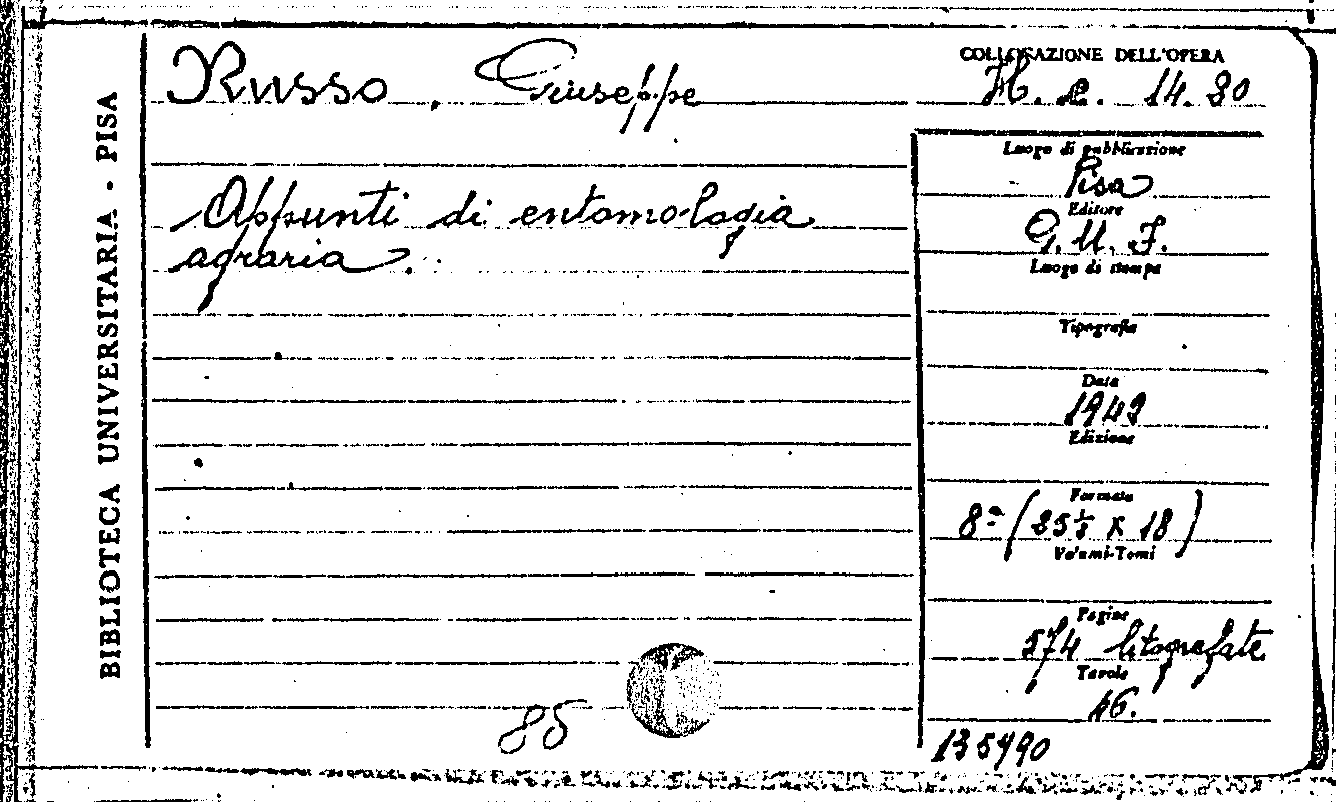 BIBLIOTECA UNIVERSITARIA - PISA
Russo, Giuseppe
Appunti di entomologia
agraria.
85
COLLOCAZIONE DELL'OPERA
H. e. 14. 30
Luogo di pubblicazione
Pisa
Editore
G. U. F.
Luogo di stampa
Tipografia
Data
1943
Edizione
Formato
8º (25½ x 18)
Volumi-Tomi
Pagine
574 litografate
Tavole
16.
135490